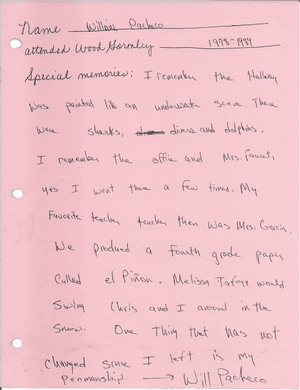 Name William Pacheco
attended Wood Gormley 1978-1984
Special memories: I remember the Hallway
was painted like an underwater scene. There
were sharks, divers and dolphins.
I remember the office and Mrs. Faucet,
yes I went there a few times. My
Favorite teacher teacher then was Mrs. Garcia.
We produced a fourth grade paper
Called el Piñon. Melissa Tafoya would
Swing Chris and I around in the
Snow. One Thing that has not
Changed since I left is my
penmanship → Will Pacheco